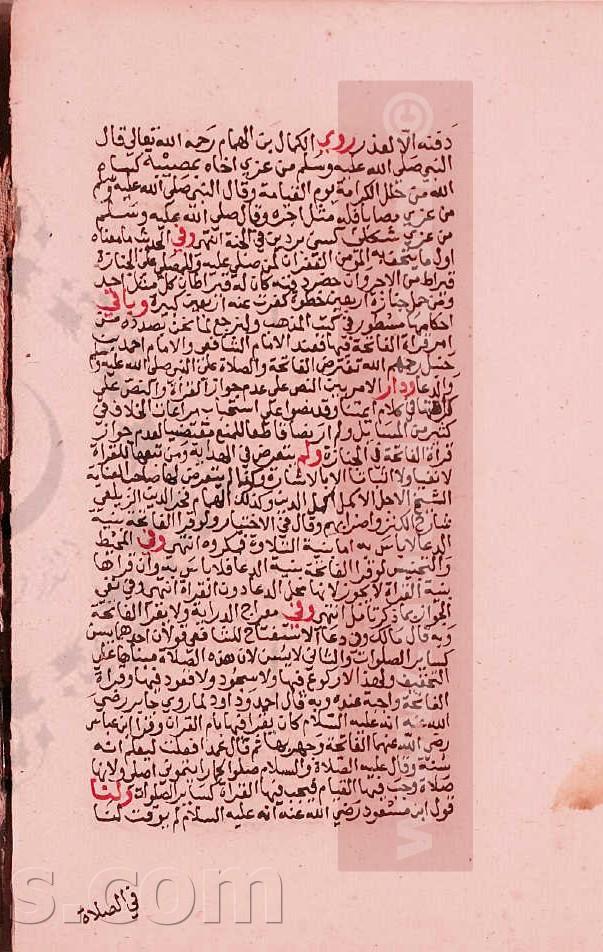 دفنه الا لعذر روى الكمال بن الهمام رحمه الله تعالى قال
النبي صلى الله عليه وسلم من عزى اخاه بمصيبة كساه
الله من حلل الكرامة يوم القيامة وقال النبي صلى الله عليه وسلم
من عزى مصابا فله مثل اجره وقال صلى الله عليه وسلم
من عزى ثكلى كسي بردين في الجنة انتهى وفي الحديث ما معناه
اول ما يتحف به المؤمن الغفران لمن صلى عليه وللمصلي على الجنازة
قيراط من الاجر وان حضر دفنه كان له قيراطان كل مثل احد
ومن حمل جنازة اربعين خطوة كفرت عنه اربعين كبيرة وباقي
احكامها مسطور في كتب المذهب ولنرجع لما نحن بصدده من
امر قراءة الفاتحة فيها فعند الامام الشافعي والامام احمد بن
حنبل رحمهم الله تفترض الفاتحة والصلاة على النبي صلى الله عليه وسلم
والدعا ودار الامر بين النص على عدم جواز القراة والنص على
كراهتها في كلام ائمتنا وقد نصوا على استحباب مراعات الخلاف في
كثير من المسائل ولم ار نصا قاطعا للمنع مقتضيا لعدم جواز
قراة الفاتحة في الجنازة ولم يتعرض في الهداية ومن تبعها للقراة
لا نفيا ولا اثباتا الا بالاشارة وكذا لم يتعرض لها صاحب العناية
الشيخ الاجل الاكمل اكمل الدين وكذلك الهمام فخر الدين الزيلعي
شارح الكنز واضرابهم وقال في الاختيار ولو قرا الفاتحة بنية
الدعا لا باس به اما بنية التلاوة فيكره انتهى وفي المحيط
والتجنيس لو قرا الفاتحة بنية الدعا فلا باس به وان قراها
بنية القراة لا يجوز لانها محل الدعا دون القراة انتهى وفي نفي
الجواز ما ذكر تامل انتهى وفي معراج الدراية ولا يقرا الفاتحة
وبه قال مالك وفي دعا الاستفتاح للشافعي قولان احدهما يسن
كساير الصلوات والثاني لا يسن لان هذه الصلاة مبناها على
التخفيف ولهذا لا ركوع فيها ولا سجود ولا قعود فيها وقراة
الفاتحة واجبة عنده وبه قال احمد وداود لما روى جابر رضي
الله عنه انه عليه السلام كان يقرا فيها بام القران وقرا ابن عباس
رضي الله عنهما الفاتحة وجهر بها ثم قال عمدا فعلت ليعلم انه
سنة وقال عليه الصلاة والسلام صلوا كما رايتموني اصلي ولانها
صلاة وجب فيها القيام فتجب فيها القراة كساير الصلوات ولنا
قول ابن مسعود رضي الله عنه انه عليه السلام لم يوقت لنا
في الصلاة
s.com